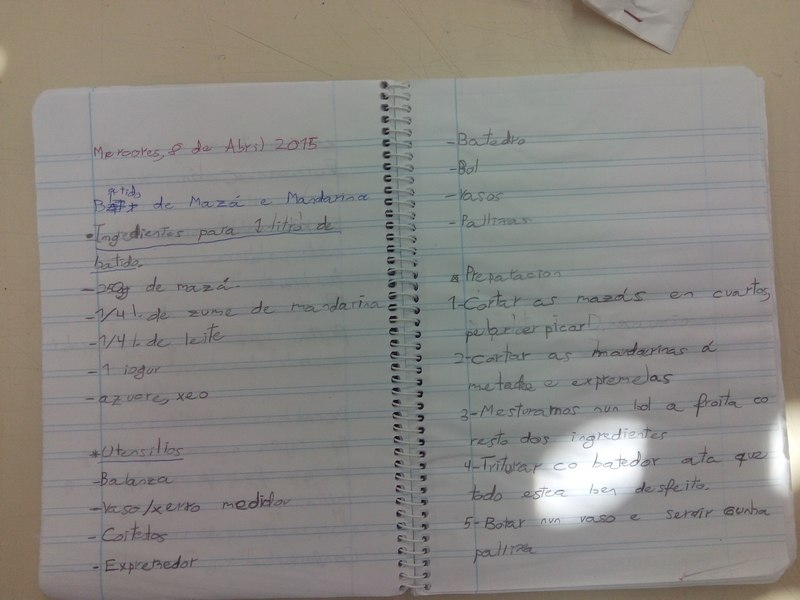 Mercores, 8 de Abril 2015
Batido de Mazá e Mandarina
• Ingredientes para 1 litro de
batido.
- 250g de mazá.
- 1/4 l. de zume de mandarina
- 1/4 l. de leite
- 1 iogur
- azucre, xeo
* Utensilios
- Balanza
- Vaso/xerro medidor
- Coitelos
- Expremedor
- Batedro
- Bol
- Vasos
- Palliñas
* Preparacion
1- Cortar as mazás en cuartos,
pelar e picar
2- Cortar as mandarinas á
metade e expremelas
3- Mesturamos nun bol a froita co
resto dos ingredientes
4- Triturar co batedor ata que
todo estea ben desfeito.
5- Botar nun vaso e servir cunha
palliña